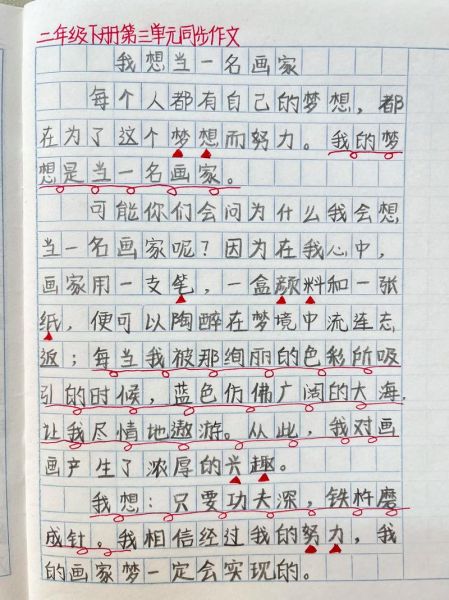 二年级下册第三单元同步作文
我想当一名画家
每个人都有自己的梦想，都
在为了这个梦想而努力。我的梦
想是当一名画家。
可能你们会问为什么我会想
当一名画家呢？因为在我心中，
画家用一支笔，一盒颜料和一张
纸，便可以陶醉在梦境中流连忘
返；每当我被那绚丽的色彩所吸
引的时候，蓝色仿佛广阔的大海，
让我尽情地遨游。从此，我对画
画产生了浓厚的兴趣。
我想：只要功夫深，铁杵磨
成针。我相信经过我的努力，我
的画家梦一定会实现的。